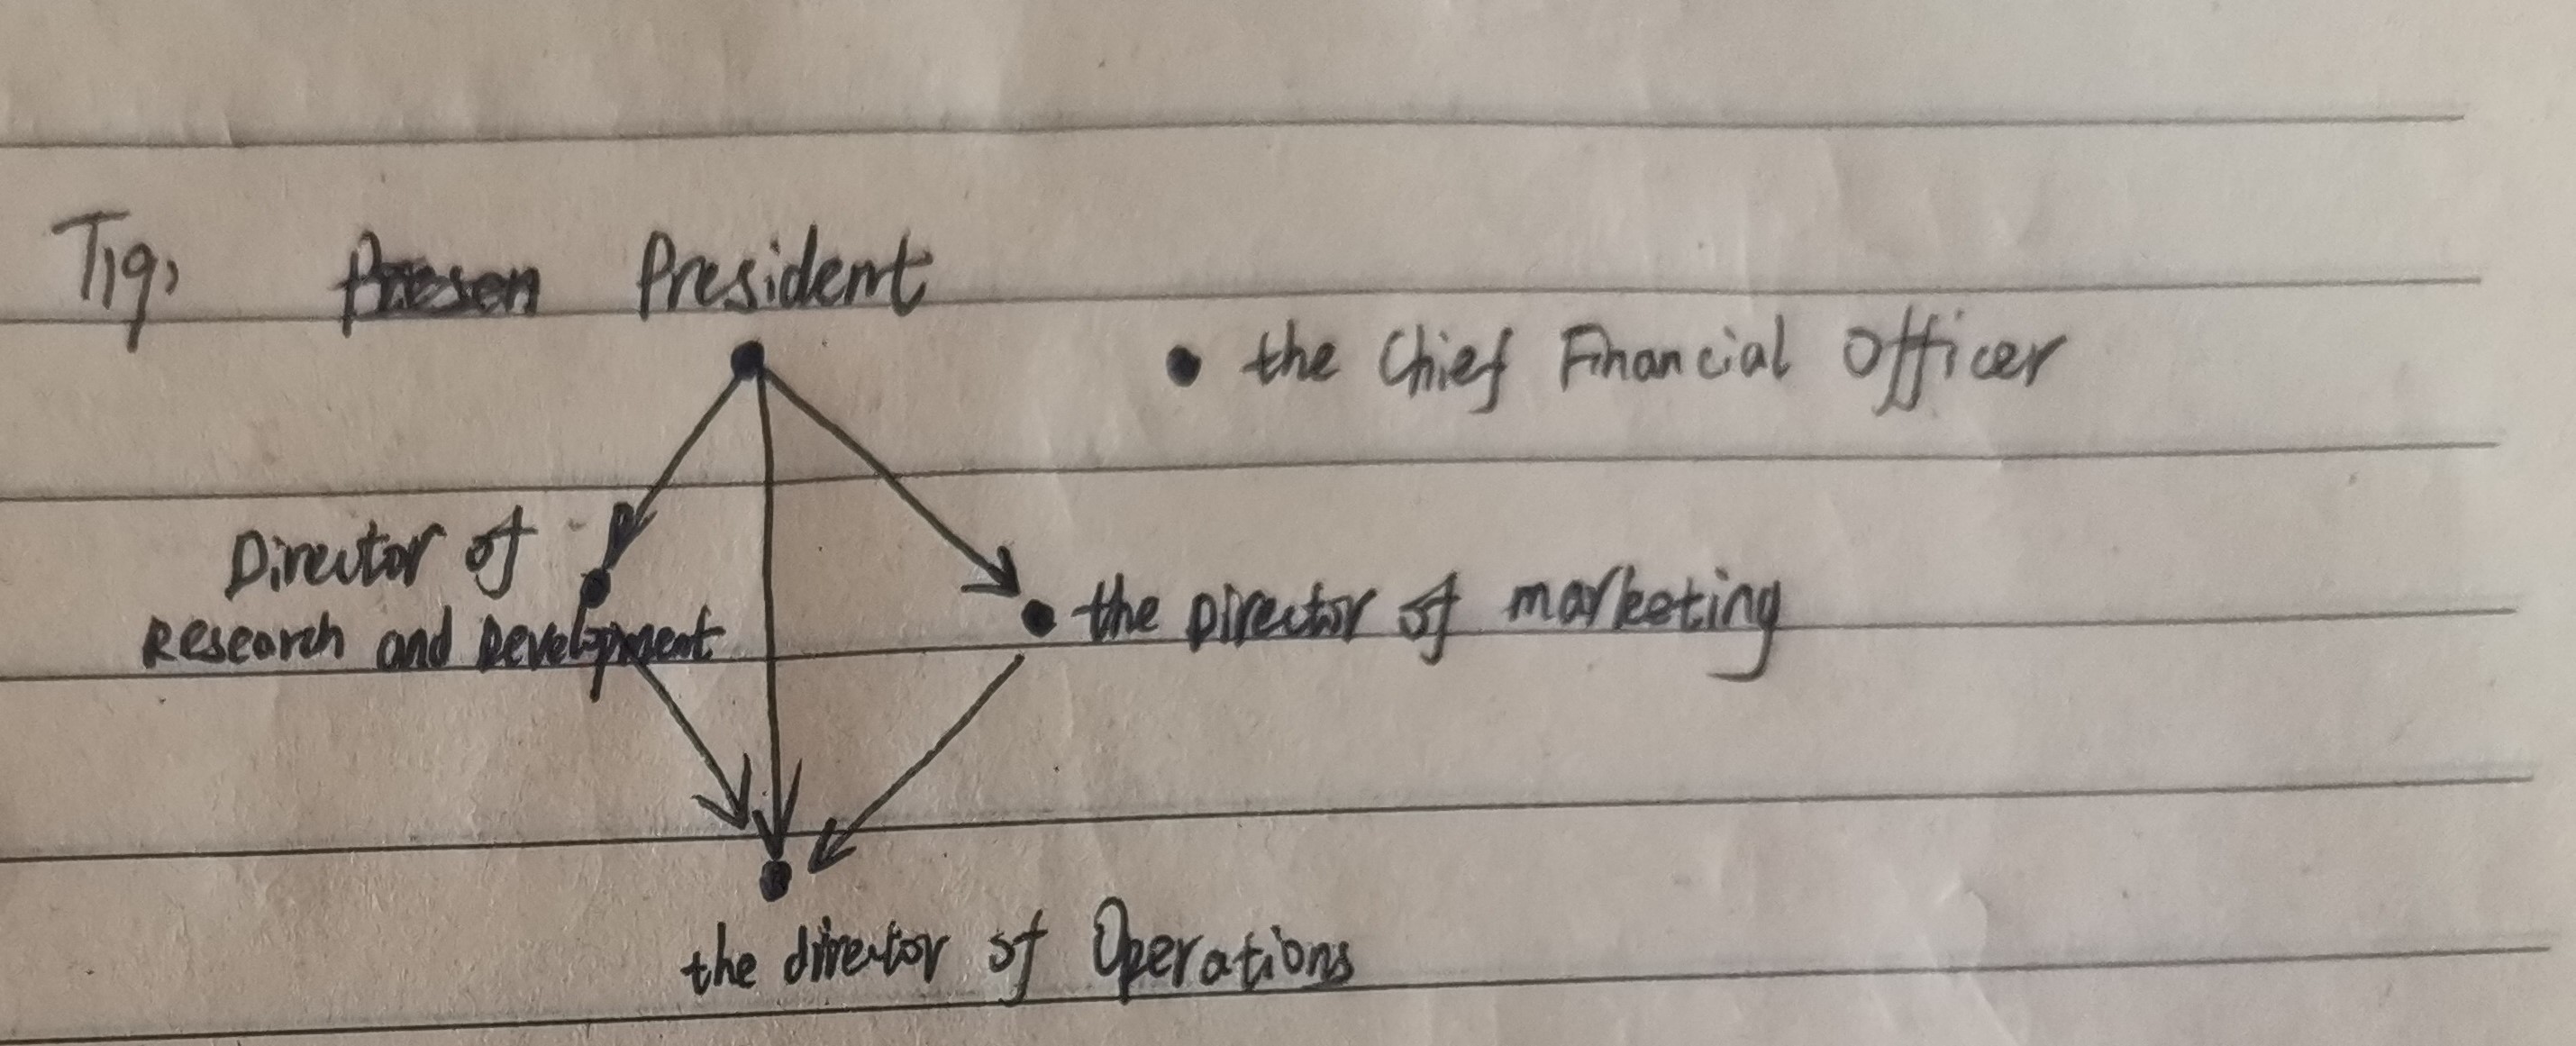 Tig, President
the Chief Financial Officer
Director of
Research and Development
the Director of marketing
the director of Operations